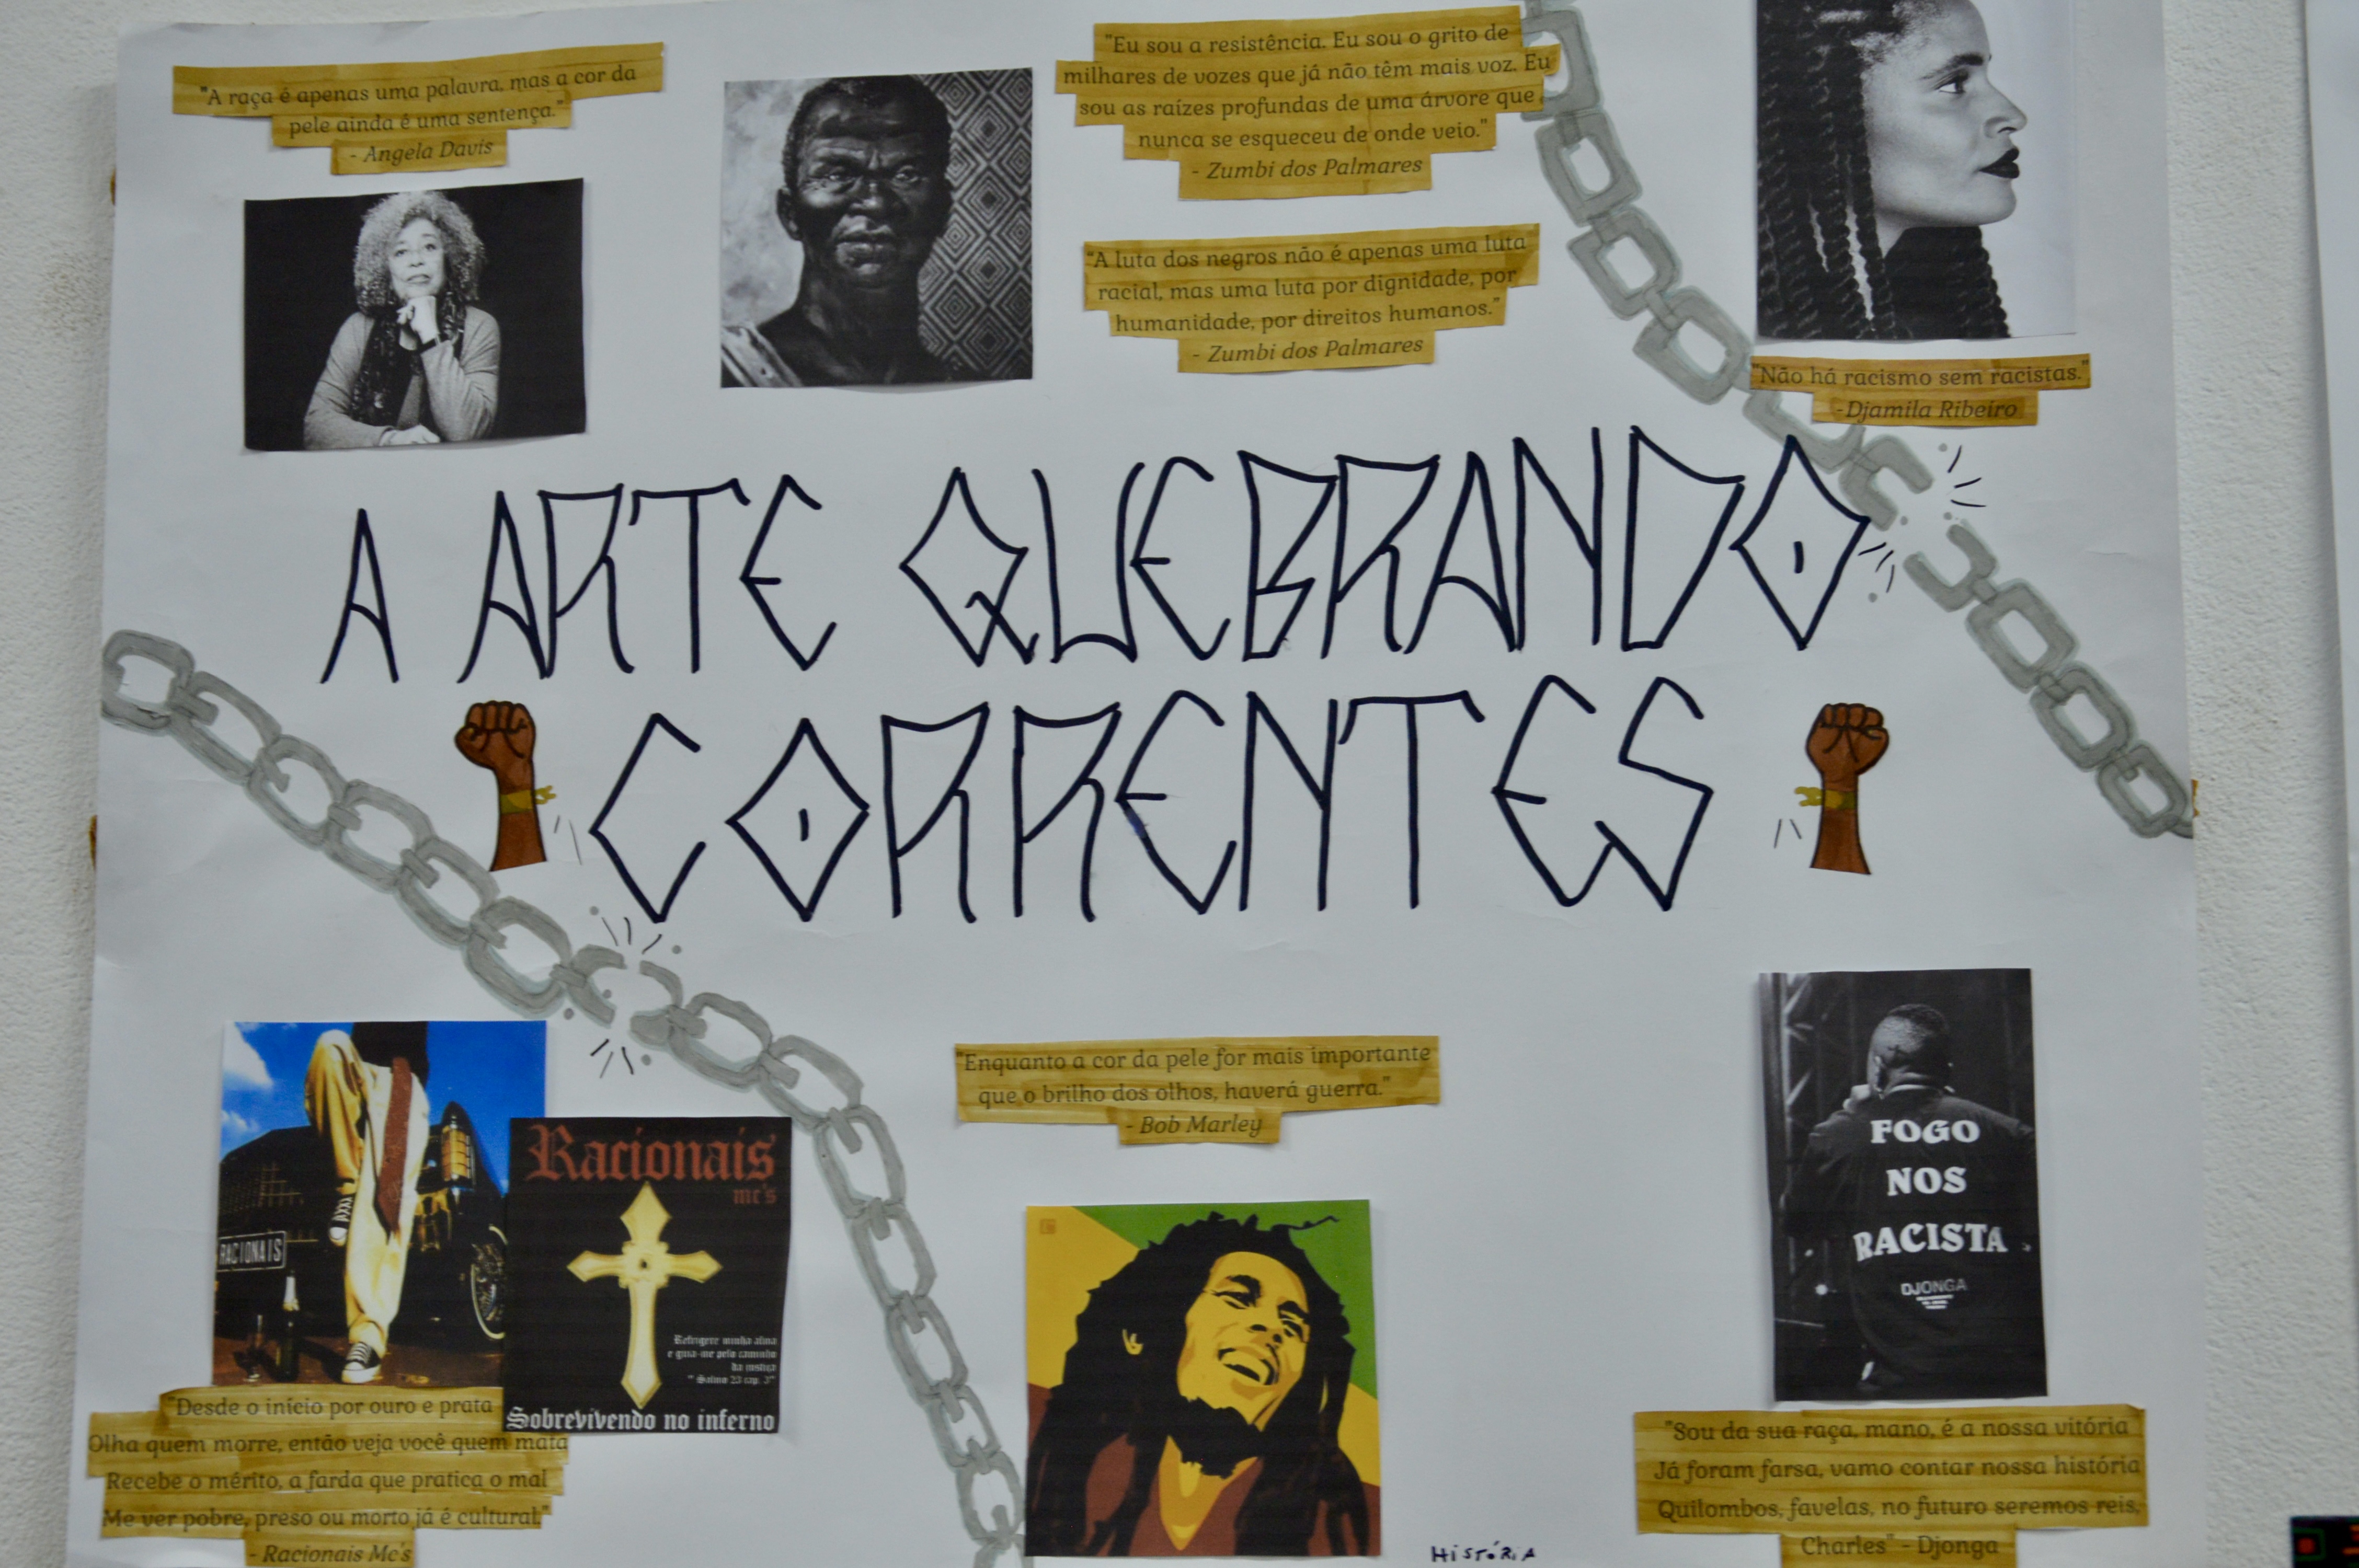 "A raça é apenas uma palavra, mas a cor da
pele ainda é uma sentença."
- Angela Davis
"Eu sou a resistência. Eu sou o grito de
milhares de vozes que já não têm mais voz. Eu
sou as raízes profundas de uma árvore que
nunca se esqueceu de onde veio."
- Zumbi dos Palmares
"A luta dos negros não é apenas uma luta
racial, mas uma luta por dignidade, por
humanidade, por direitos humanos."
- Zumbi dos Palmares
"Não há racismo sem racistas."
-Djamila Ribeiro
A ARTE QUEBRANDO
CORRENTES
RACIONAIS
Racionais
mc's
Refrigere minha alma
e guia-me pelo caminho
da justiça
" Salmo 23 cap. 3"
Sobrevivendo no inferno
"Desde o início por ouro e prata
Olha quem morre, então veja você quem mata
Recebe o mérito, a farda que pratica o mal
Me ver pobre, preso ou morto já é cultural"
- Racionais Mc's
"Enquanto a cor da pele for mais importante
que o brilho dos olhos, haverá guerra."
- Bob Marley
FOGO
NOS
RACISTA
DJONGA
"Sou da sua raça, mano, é a nossa vitória
Já foram farsa, vamo contar nossa história
Quilombos, favelas, no futuro seremos reis,
Charles" - Djonga
HISTÓRIA